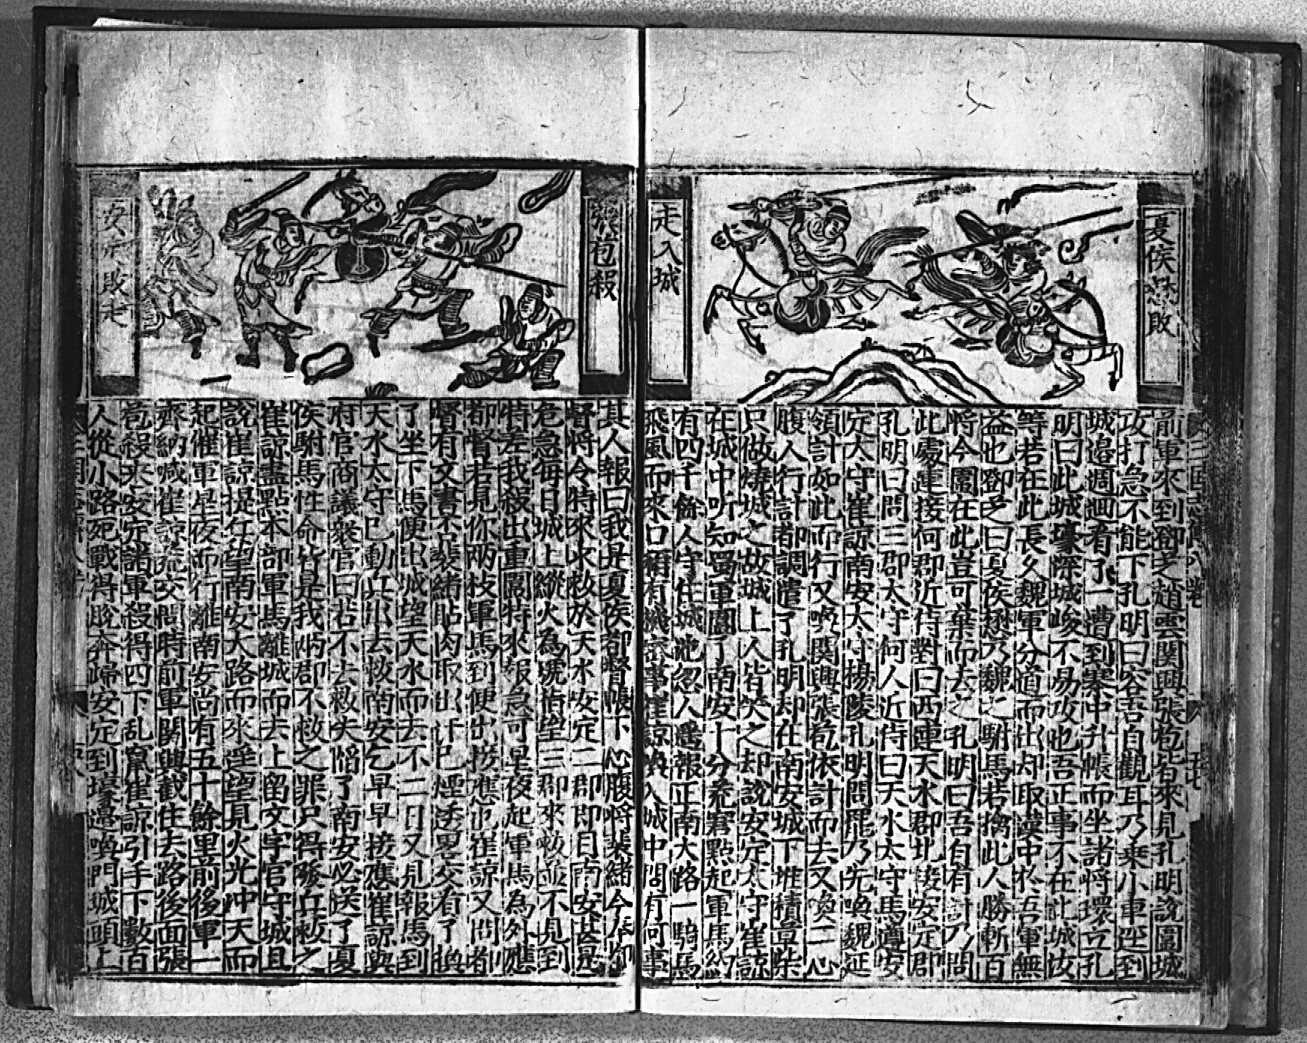 夏侯懋敗
走入城
前軍來到鄧芝趙雲關興張苞皆來見孔明說圍城
攻打急不能下孔明曰容吾自觀耳乃乘小車逕到
城邊週迴看了一遭到寨中升帳而坐諸將環立孔
明曰此城壕深城峻不易攻也吾正事不在此城汝
等若在此長久魏軍分道而出却取漢中於吾軍無
益也鄧芝曰夏侯懋乃魏之駙馬若擒此人勝斬百
將今圍在此豈可棄而去之孔明曰吾自有計乃問
此處連接何郡近侍對曰西連天水郡北接安定郡
孔明曰問三郡太守何人近侍曰天水太守馬遵安
定太守崔諒南安太守楊陵孔明問罷乃先喚魏延
領計如此而行又喚關興張苞依計而去又喚二心
腹人行計者調遣了孔明却在南安城下堆積草柴
只做燒城之故城上人皆笑之却說安定太守崔諒
在城中听知蜀軍圍了南安十分荒窘點起軍馬約
有四千餘人守住城池忽人邊報正南大路一騎馬
飛風而來口稱有機密事崔諒喚入城中問有何事
苞殺
安定敗走
其人報曰我是夏侯都督帳下心腹將裴緒今奉都
督將令特來求救於天水安定二郡即目南安甚是
危急每日城上縱火為號指望三郡來救並不見到
特差我殺出重圍特來報急可星夜起軍馬為外應
都督若見你兩枝軍馬到便出接應也崔諒又問者
督有文書否裴緒貼肉取出汗已煙透畧交看了換
了坐下馬便出城望天水而去不二日又見報馬到
天水太守已動兵出去救南安乞早早接應崔諒與
府官商議衆官曰若不去救失陷了南安必送了夏
侯駙馬性命皆是我兩郡不救之罪只得發兵救之
崔諒盡點本部軍馬離城而去上留文字官守城且
說崔諒提兵望南安大路而來遙望見火光冲天而
起催軍星夜而行離南安尚有五十餘里前後軍一
齊納喊崔諒荒交間時前軍關興截住去路後面張
苞殺來安定諸軍殺得四下乱竄崔諒引手下數百
人從小路死戰得脫奔歸安定到壕邊喚門城頭上